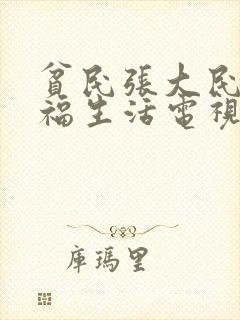 貧民張大民
福生活電視
庫瑪里